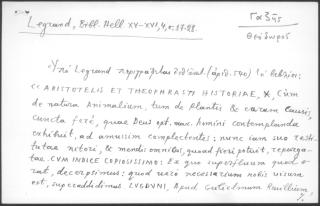 Γαζῆς
Θεόδωρος
Legrand, Bibl. Hell XV-XVI, 4, σ. 27-28.
Ὑπὸ Legrand περιγράφεται (ἀριθ. 540) ἡ ἔκδοσις:
<<ARISTOTELIS ET THEOPHRASTI HISTORIAE, cùm
de natura Animalium, tum de plantis & earum Causis,
cuncta ferè, quae Deus opt. max. homini contemplanda
exhibuit, ad amussim complectentes: nunc iam suo resti-
tutae nitori, & mendis omnibus, quoad fieri potuit, repurga-
tae. CVM INDICE COPIOSISSIMO: Ex quo superfluum quod e-
rat, decerpsimus: quod verò necessarium nobis visum
est, superaddidimus LVGDVNI, Apud Gulielmum Rouillium